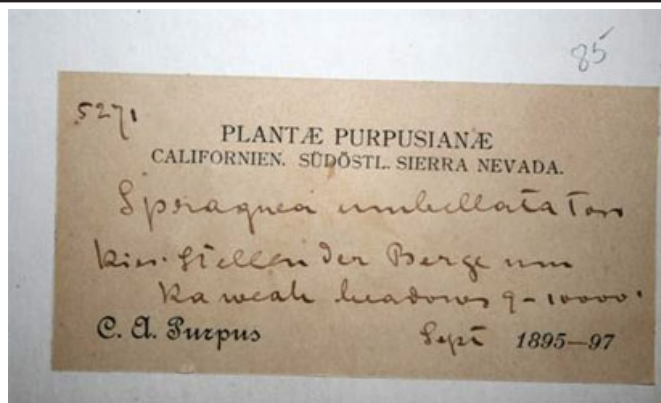 85
5271
PLANTÆ PURPUSIANÆ
CALIFORNIEN. SÜDÖSTL. SIERRA NEVADA.
Spraguea umbellata Torr
Kies. Stellen der Berge um
Kaweah meadows 9-10000'
C. A. Purpus Sept 1895—97